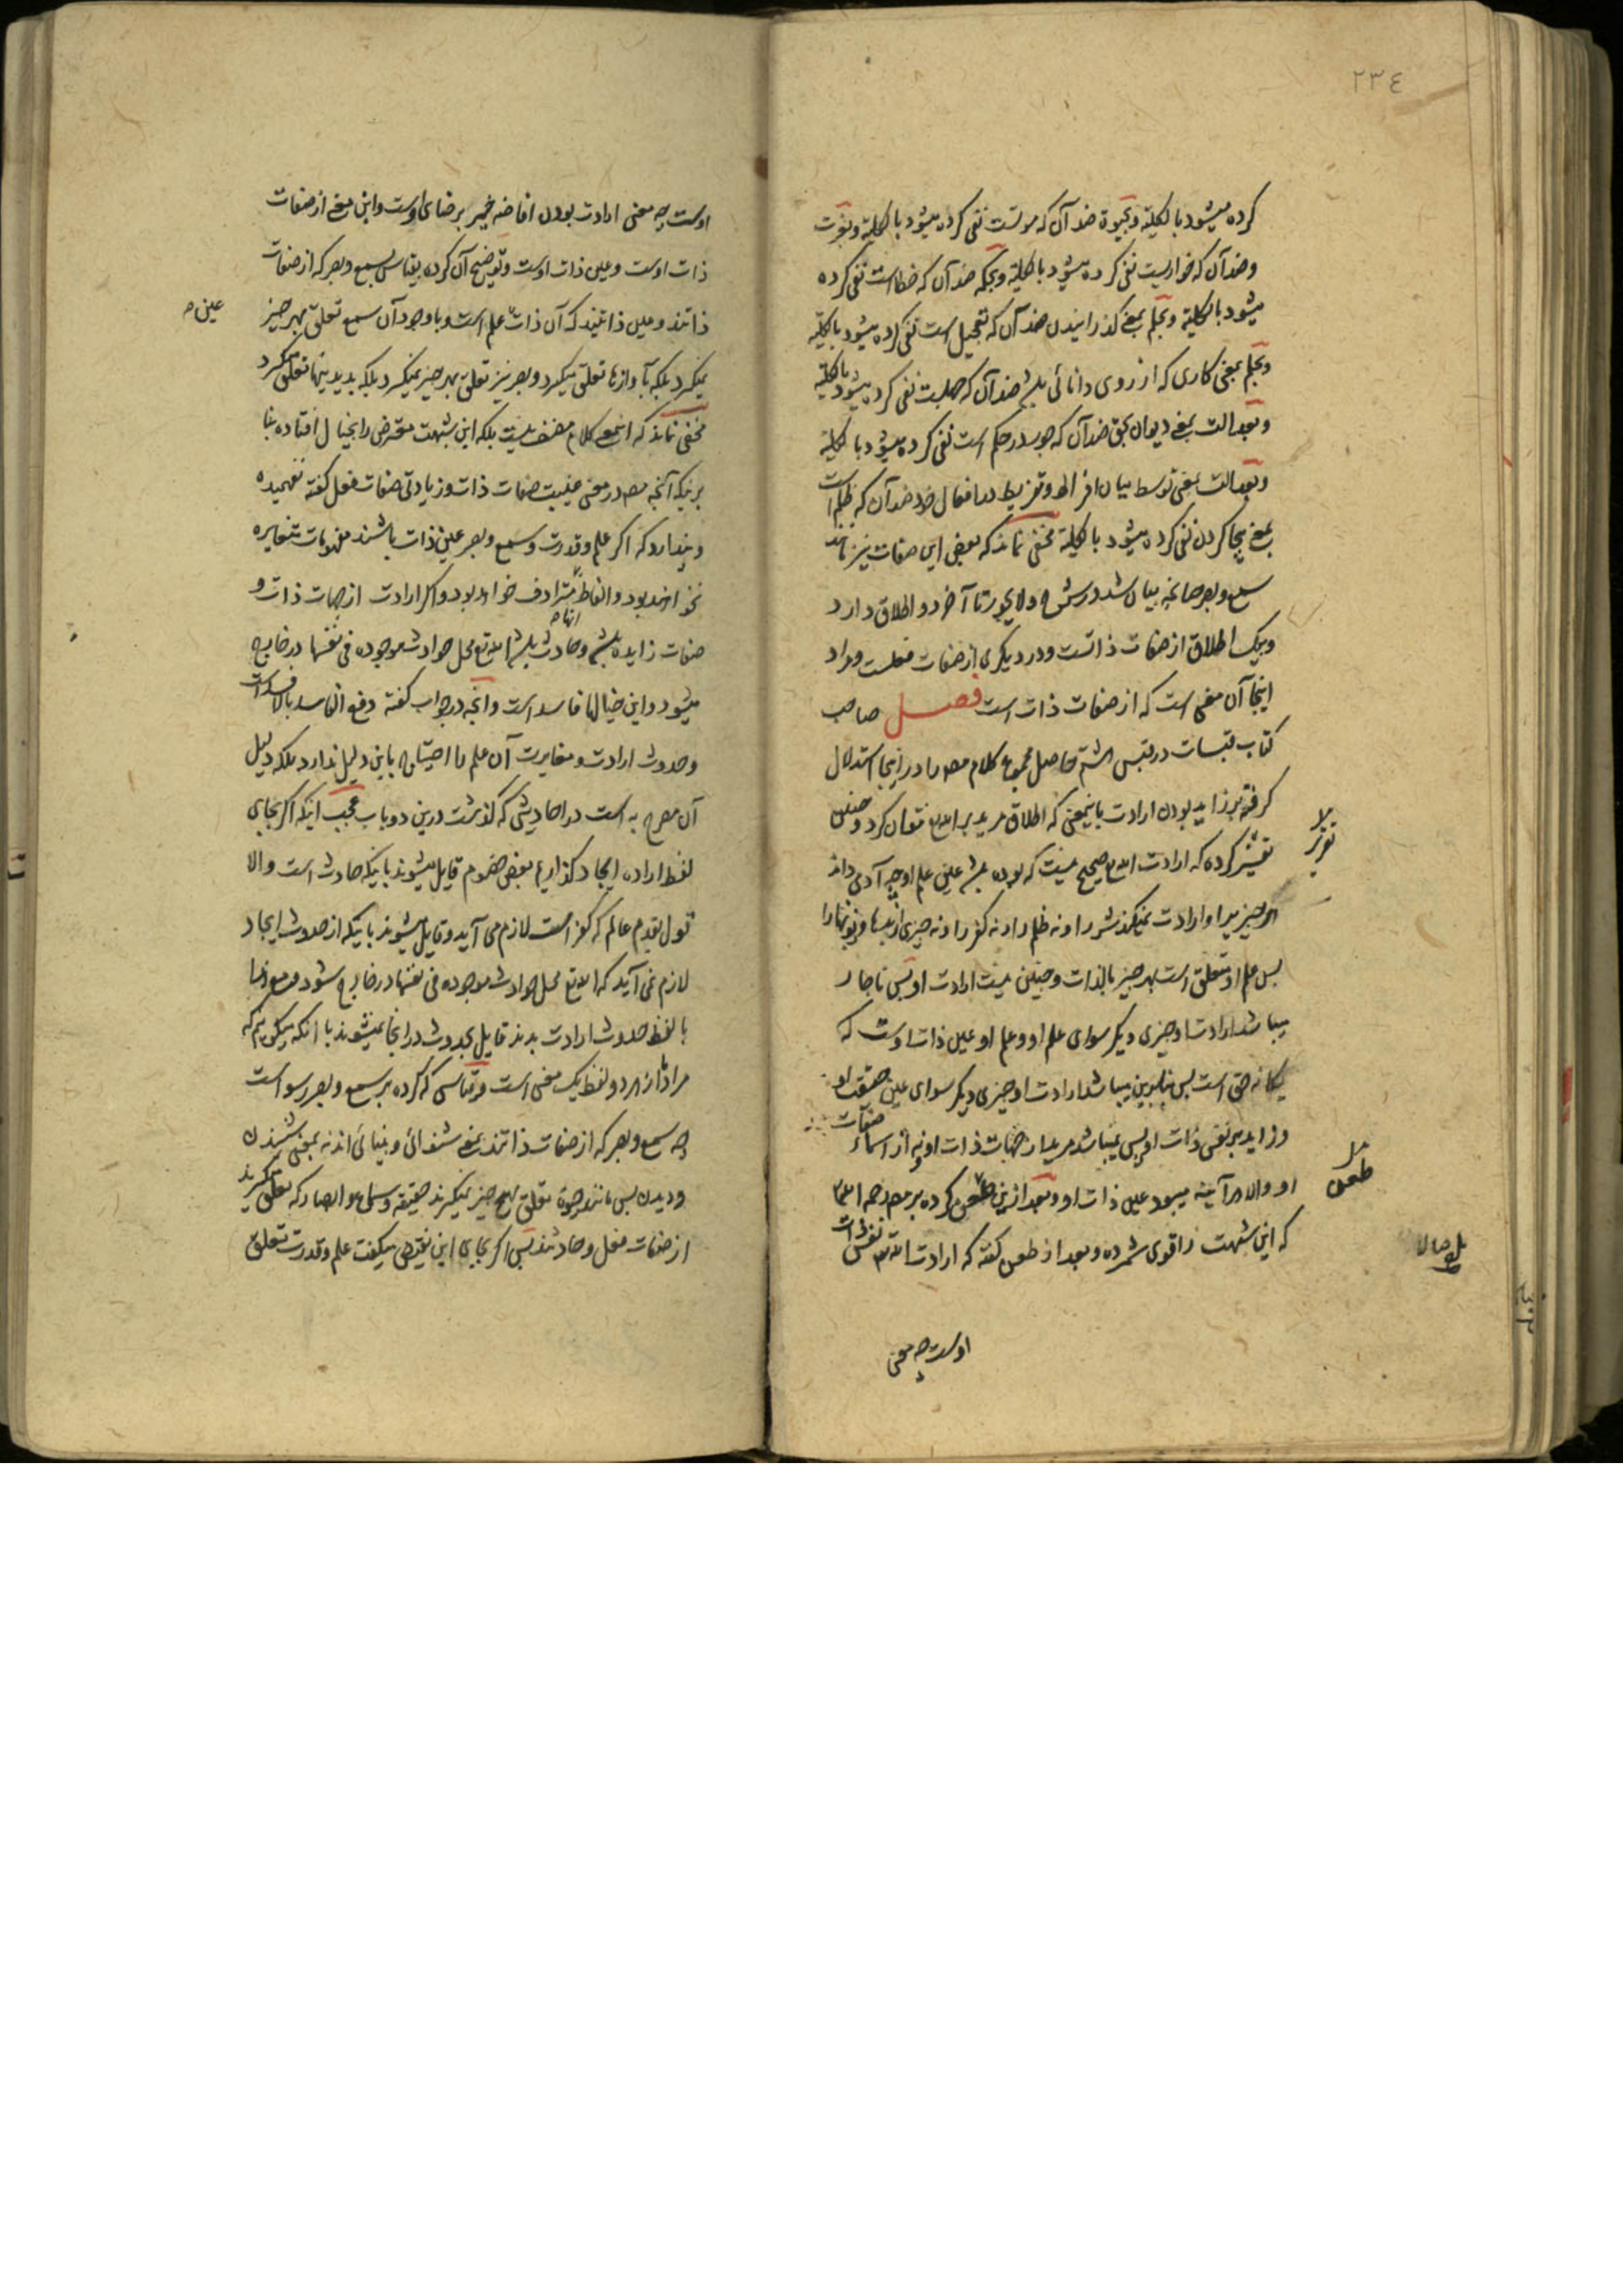 ٢٣٤
کرده میشود بالکلیة و بحیوة ضد آن که موتست نفی کرده میشود بالکلیة و بعزت
و ضد آن که خواریست نفی کرده میشود بالکلیة و بحکمة ضد آن که خطاست نفی کرده
میشود بالکلیة و بحلم بمعنی گذرانیدن ضد آن که تعجیل است نفی کرده میشود بالکلیة
و بحلم بمعنی کاری که از روی دانائی باشد ضد آن که جهلست نفی کرده میشود بالکلیة
و بعدالت بمعنی دیوان بحق ضد آن که جور در حکم است نفی کرده میشود بالکلیة
و بعدالت بمعنی توسط میان افراط و تفریط در افعال خود ضد آن که ظلم است
بمعنی بیجا کردن نفی کرده میشود بالکلیة مخفی نماند که بعضی این صفات نیز مانند
سمع و بصر چنانچه بیان شد در شرح ولا یجور تا آخر دو اطلاق دارد
و بیک اطلاق از صفات ذاتست و در دیگری از صفات فعلست و مراد
اینجا آن معنی است که از صفات ذات است فصل صاحب
کتاب قبسات در قبس هشتم حاصل مجموع کلام مصر را در اینجا استدلال
گرفته بر زاید بودن ارادت باینمعنی که اطلاق مرید بر الله تع نتوان کرد و چنین
تقریر کرده که ارادت الله تع صحیح نیست که بوده باشد عین علم او چه آدمی داند
هر چیز را و ارادت نمیکند شر را و نه ظلم را و نه کفر را و نه چیزی از بدیها و زبونیها را
پس علم او متعلق است بهر چیز بالذات و چنین نیست ارادت او پس ناچار
میباشد ارادت او چیزی دیگر سوای علم او و علم او عین ذات اوست که
یگانه حق است پس بنابرین میباشد ارادت او چیزی دیگر سوای عین حقیقت او
و زاید بر نفس ذات او پس نمیباشد مرید از صفات ذات او نه از اسماء صفات
او والا هر آینه میبود عین ذات او و بعد ازین طعن کرده بر مصر رحمه الله تعالی
که این شبهت را قوی شمرده و بعد از طعن گفته که ارادت الله تع نفس ذات
تقریر
طعن
اوست چه معنی
اوست چه معنی ارادت بودن افاضه خیر بر رضای اوست و این معنی از صفات
ذات اوست و عین ذات اوست و توضیح آن کرده بقیاس سمع و بصر که از صفات
ذاتند و عین ذاتیند که آن ذات علم است و با وجود آن سمع تعلق بهر چیز
نمیگیرد بلکه بآوازها تعلق میگیرد و بصر نیز تعلق بهر چیز نمیگیرد بلکه بدیدنیها تعلق میگیرد
مخفی نماند که اینمعنی کلام مصنف نیست بلکه این شبهت معترض را بخیال افتاده بنا
برینکه آنچه مصر در معنی عینیت صفات ذات و زیادتی صفات فعل گفته نفهمیده
و پندارد که اگر علم و قدرت و سمع و بصر عین ذات باشند مفهومات متغایره
نخواهند بود و الفاظ مترادف خواهد بود و اگر ارادت از صفات ذات و
صفات زایده باشد و حادث باشد الله تع محل حوادث موجوده فی نفسها در خارج
میشود و این خیالها فاسد است و آنچه در جواب گفته دفع الفاسد بالافسد است
و حدوث ارادت و مغایرت آن علم را احتیاج باین دلیل ندارد بلکه دلیل
آن مصرح به است در احادیثی که گذشت درین دو باب عجب اینکه اگر بجای
لفظ اراده ایجاد گذاریم بعضی خصوم قایل میشوند باینکه حادث است والا
قول بقدم عالم که کفر است لازم می آید و قایل میشوند باینکه از حدوث ایجاد
لازم نمی آید که الله تع محل حوادث موجوده فی نفسها در خارج شود و مع هذا
با لفظ حدوث ارادت بدند قایل بحدوث در اینجا نمیشوند با آنکه میگوییم که
مراد از هر دو لفظ یک معنی است و قیاسی که کرده بر سمع و بصر رسواست
چه سمع و بصر که از صفات ذاتند بمعنی شنوائی و بینائی اند نه بمعنی شنیدن
و دیدن پس مانند حیوة تعلق بهیچ چیز نمیگیرند حقیقة و سماع و ابصار که تعلق میگیرند
از صفات فعل و حادثند پس اگر بجای این نقیض میگفت علم و قدرت تعلق
عین